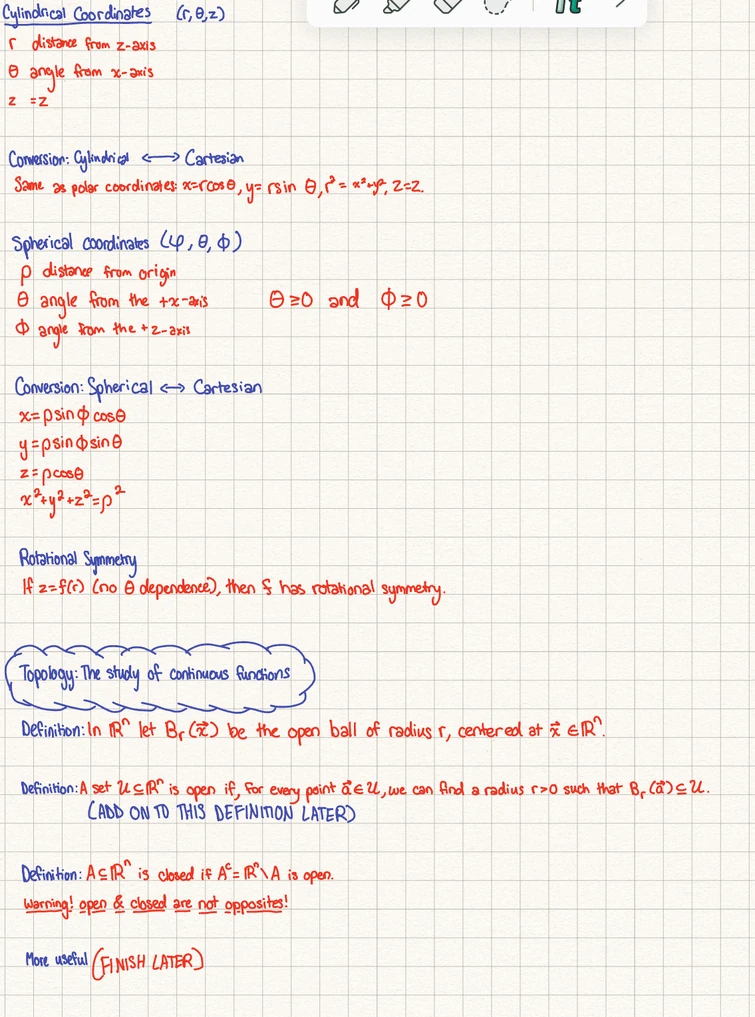 Cylindrical Coordinates (r, θ, z)
r distance from z-axis
θ angle from x-axis
z = z
Conversion: Cylindrical ⟷ Cartesian
Same as polar coordinates: x=rcosθ, y= rsin θ, r²= x²+y², z=z.
Spherical coordinates (φ, θ, ϕ)
ρ distance from origin
θ angle from the +x-axis θ≥0 and ϕ≥0
ϕ angle from the +z-axis
Conversion: Spherical ⟷ Cartesian
x=ρsinϕcosθ
y=ρsinϕsinθ
z=ρcosθ
x²+y²+z²=ρ²
Rotational Symmetry
If z=f(r) (no θ dependence), then f has rotational symmetry.
Topology: The study of continuous functions
Definition: In ℝⁿ let Bᵣ(x⃗) be the open ball of radius r, centered at x⃗ ∈ℝⁿ.
Definition: A set U⊆ℝⁿ is open if, for every point a⃗∈U, we can find a radius r>0 such that Bᵣ(a⃗)⊆U.
(ADD ON TO THIS DEFINITION LATER)
Definition: A⊆ℝⁿ is closed if Aᶜ=ℝⁿ\A is open.
Warning! open & closed are not opposites!
More useful (FINISH LATER)